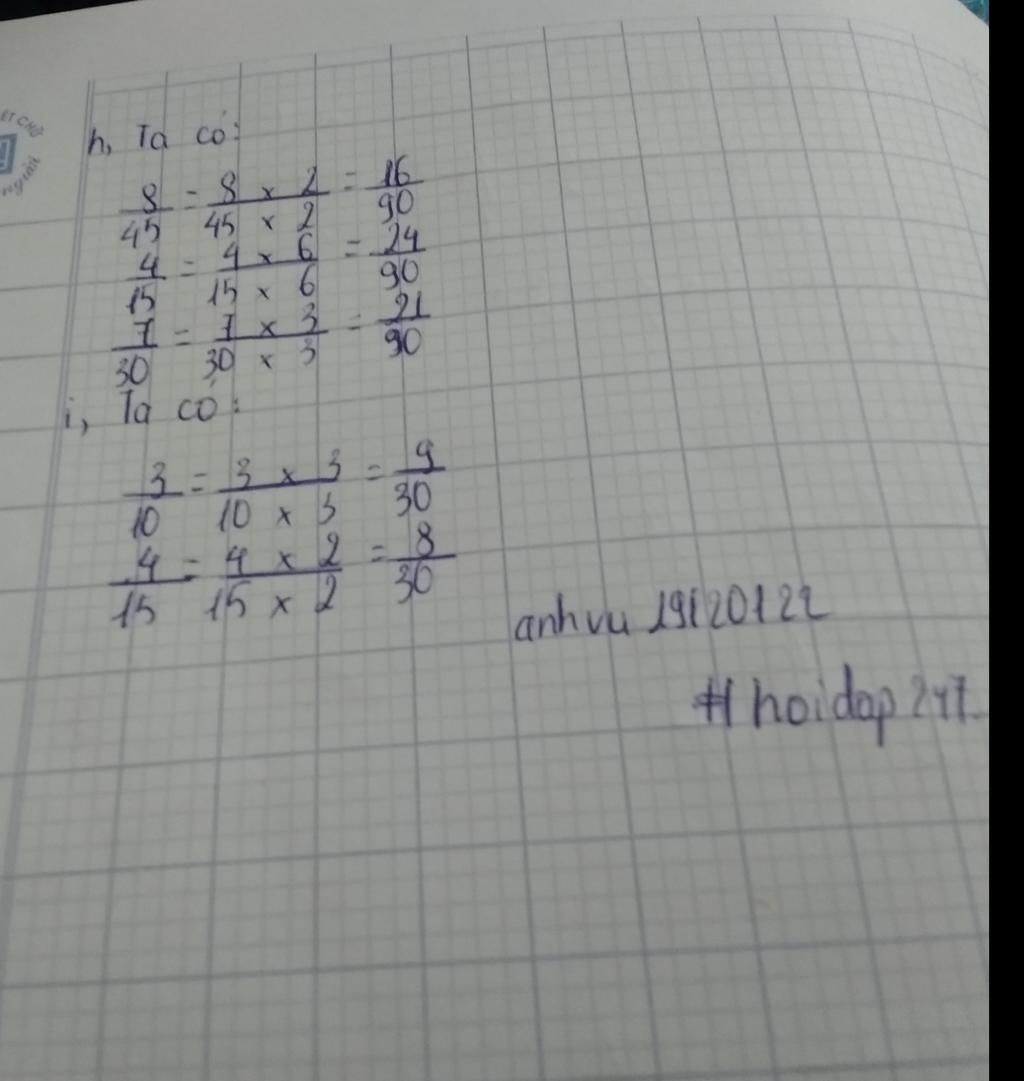 h, Ta có:
8/45 = 8 x 2 / 45 x 2 = 16/90
4/15 = 4 x 6 / 15 x 6 = 24/90
7/30 = 7 x 3 / 30 x 3 = 21/90
i, Ta có:
3/10 = 3 x 3 / 10 x 3 = 9/30
4/15 = 4 x 2 / 15 x 2 = 8/30
anhvu 19120122
# hoidap 247